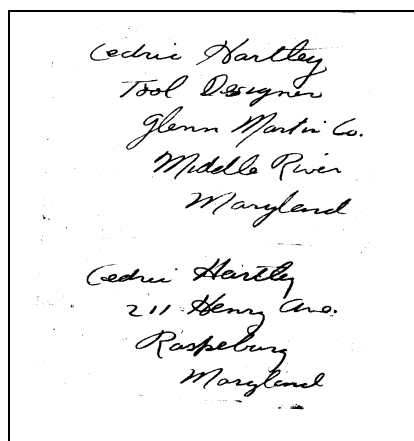 Cedric Hartley
Tool Designer
Glenn Martin Co.
Middle River
Maryland
Cedric Hartley
211 Henry Ave.
Raspeburg
Maryland